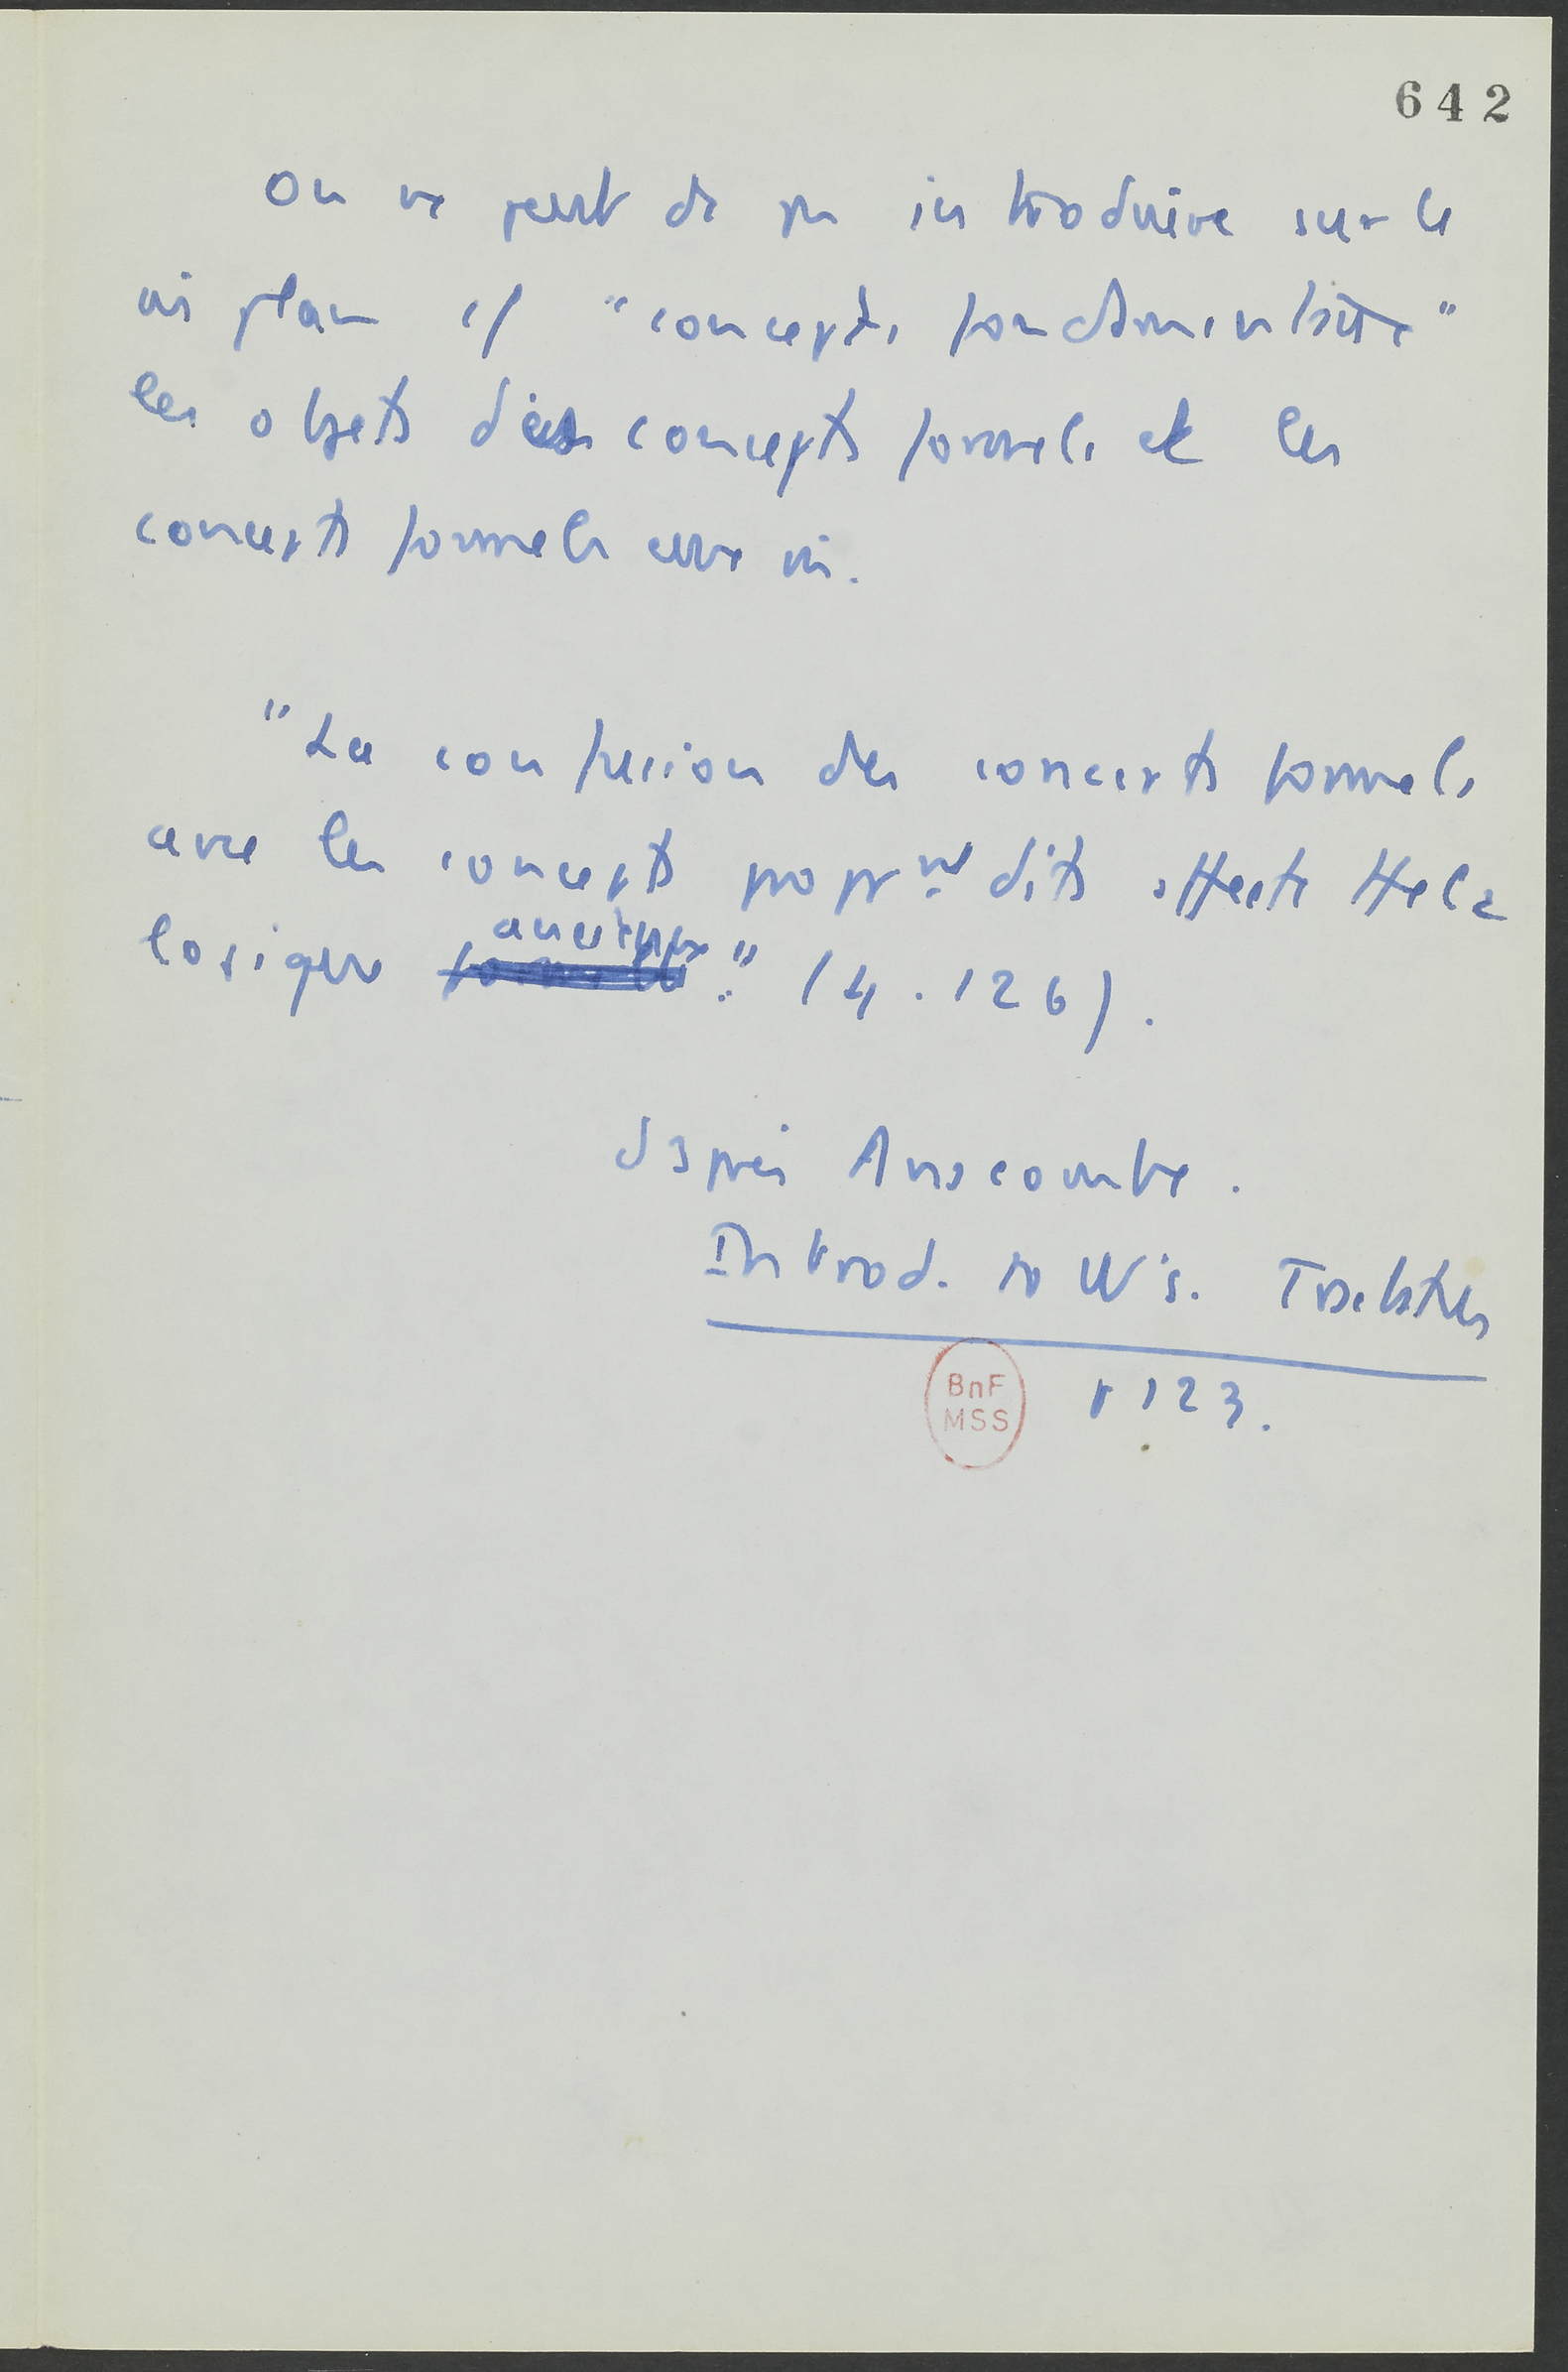 642
On ne peut dc pas introduire sur le
m̂ plan cf "concepts fondamentaux"
les objets des concepts formels et les
concepts formels eux m̂.
"La confusion des concepts formels
avec les concepts proprmt dits affecte tte la
logique ancienne." (4.126).
d'après Anscombe.
Introd. to W's. Tractatus
p 123.
BnF
MSS